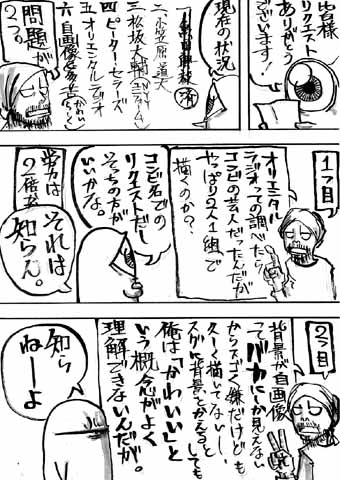 皆様
リクエスト
ありがとう
ございます!
現在の状況
済
二、小笠原道大
三、松坂大輔
四、ピーター・セラーズ
五、オリエンタルラジオ
問題が
2つ。
1つ目
オリエンタル
ラジオっての調べたら
コンビの芸人だったんだが
やっぱり2人1組で
描くのか?
コンビ名での
リクエストだし
そっちの方が
いいかな。
労力は
2倍だ
それは
知らん。
2つ目
背景が自画像
ってバカにしか見えない
からスゴく嫌だけども
スグに背景とかえるとしても
俺は「かわいい」と
いう概念がよく
理解できないんだが。
知ら
ねーよ